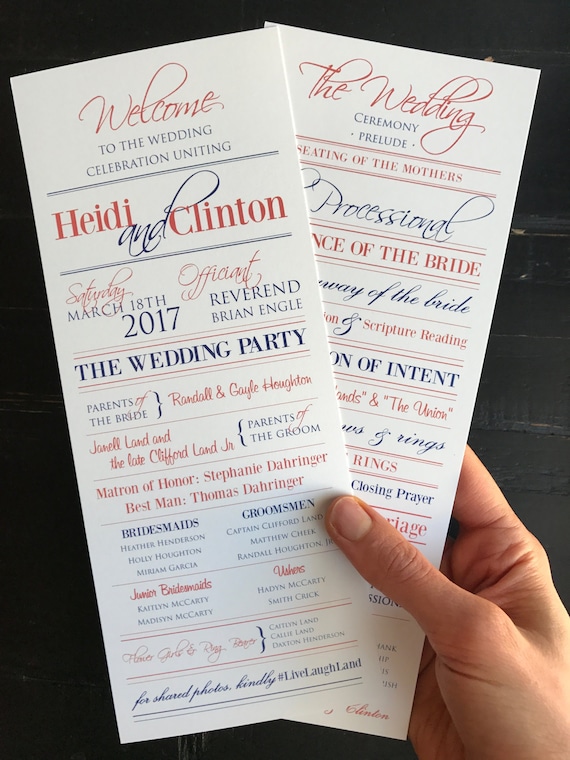 Welcome
TO THE WEDDING
CELEBRATION UNITING
Heidi and Clinton
Saturday
MARCH 18TH
2017
Officiant
REVEREND
BRIAN ENGLE
THE WEDDING PARTY
PARENTS of
THE BRIDE } Randall & Gayle Houghton
Janell Land and
the late Clifford Land Jr { PARENTS of
THE GROOM
Matron of Honor: Stephanie Dahringer
Best Man: Thomas Dahringer
BRIDESMAIDS
HEATHER HENDERSON
HOLLY HOUGHTON
MIRIAM GARCIA
GROOMSMEN
CAPTAIN CLIFFORD LAND
MATTHEW CHEEK
RANDALL HOUGHTON, JR
Junior Bridesmaids
KAITLYN MCCARTY
MADISYN MCCARTY
Ushers
HADYN MCCARTY
SMITH CRICK
Flower Girls & Ring Bearer } CAITLYN LAND
CALLIE LAND
DAXTON HENDERSON
for shared photos, kindly #LiveLaughLand
The Wedding
CEREMONY
· PRELUDE ·
SEATING OF THE MOTHERS
Processional
NCE OF THE BRIDE
way of the bride
on & Scripture Reading
ON OF INTENT
ands" & "The Union"
ws & rings
RINGS
Closing Prayer
riage
SSION
HANK
Clinton